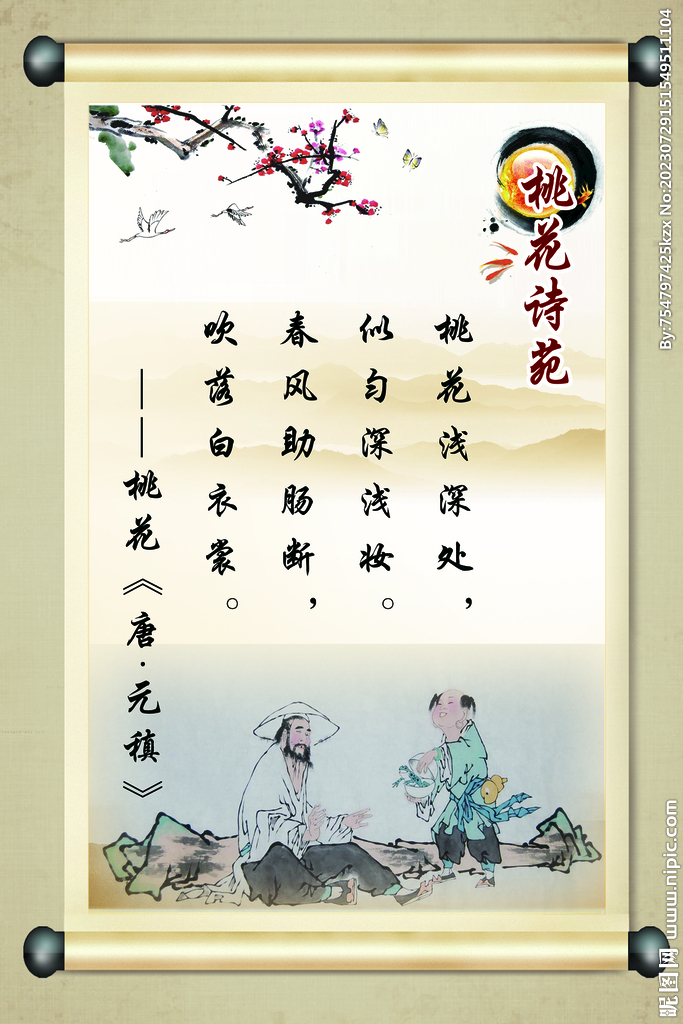 桃花诗苑
桃花浅深处，
似匀深浅妆。
春风助肠断，
吹落白衣裳。
——桃花《唐·元稹》
By:754797425kzx No:20230729151549511104
昵图网 www.nipic.com